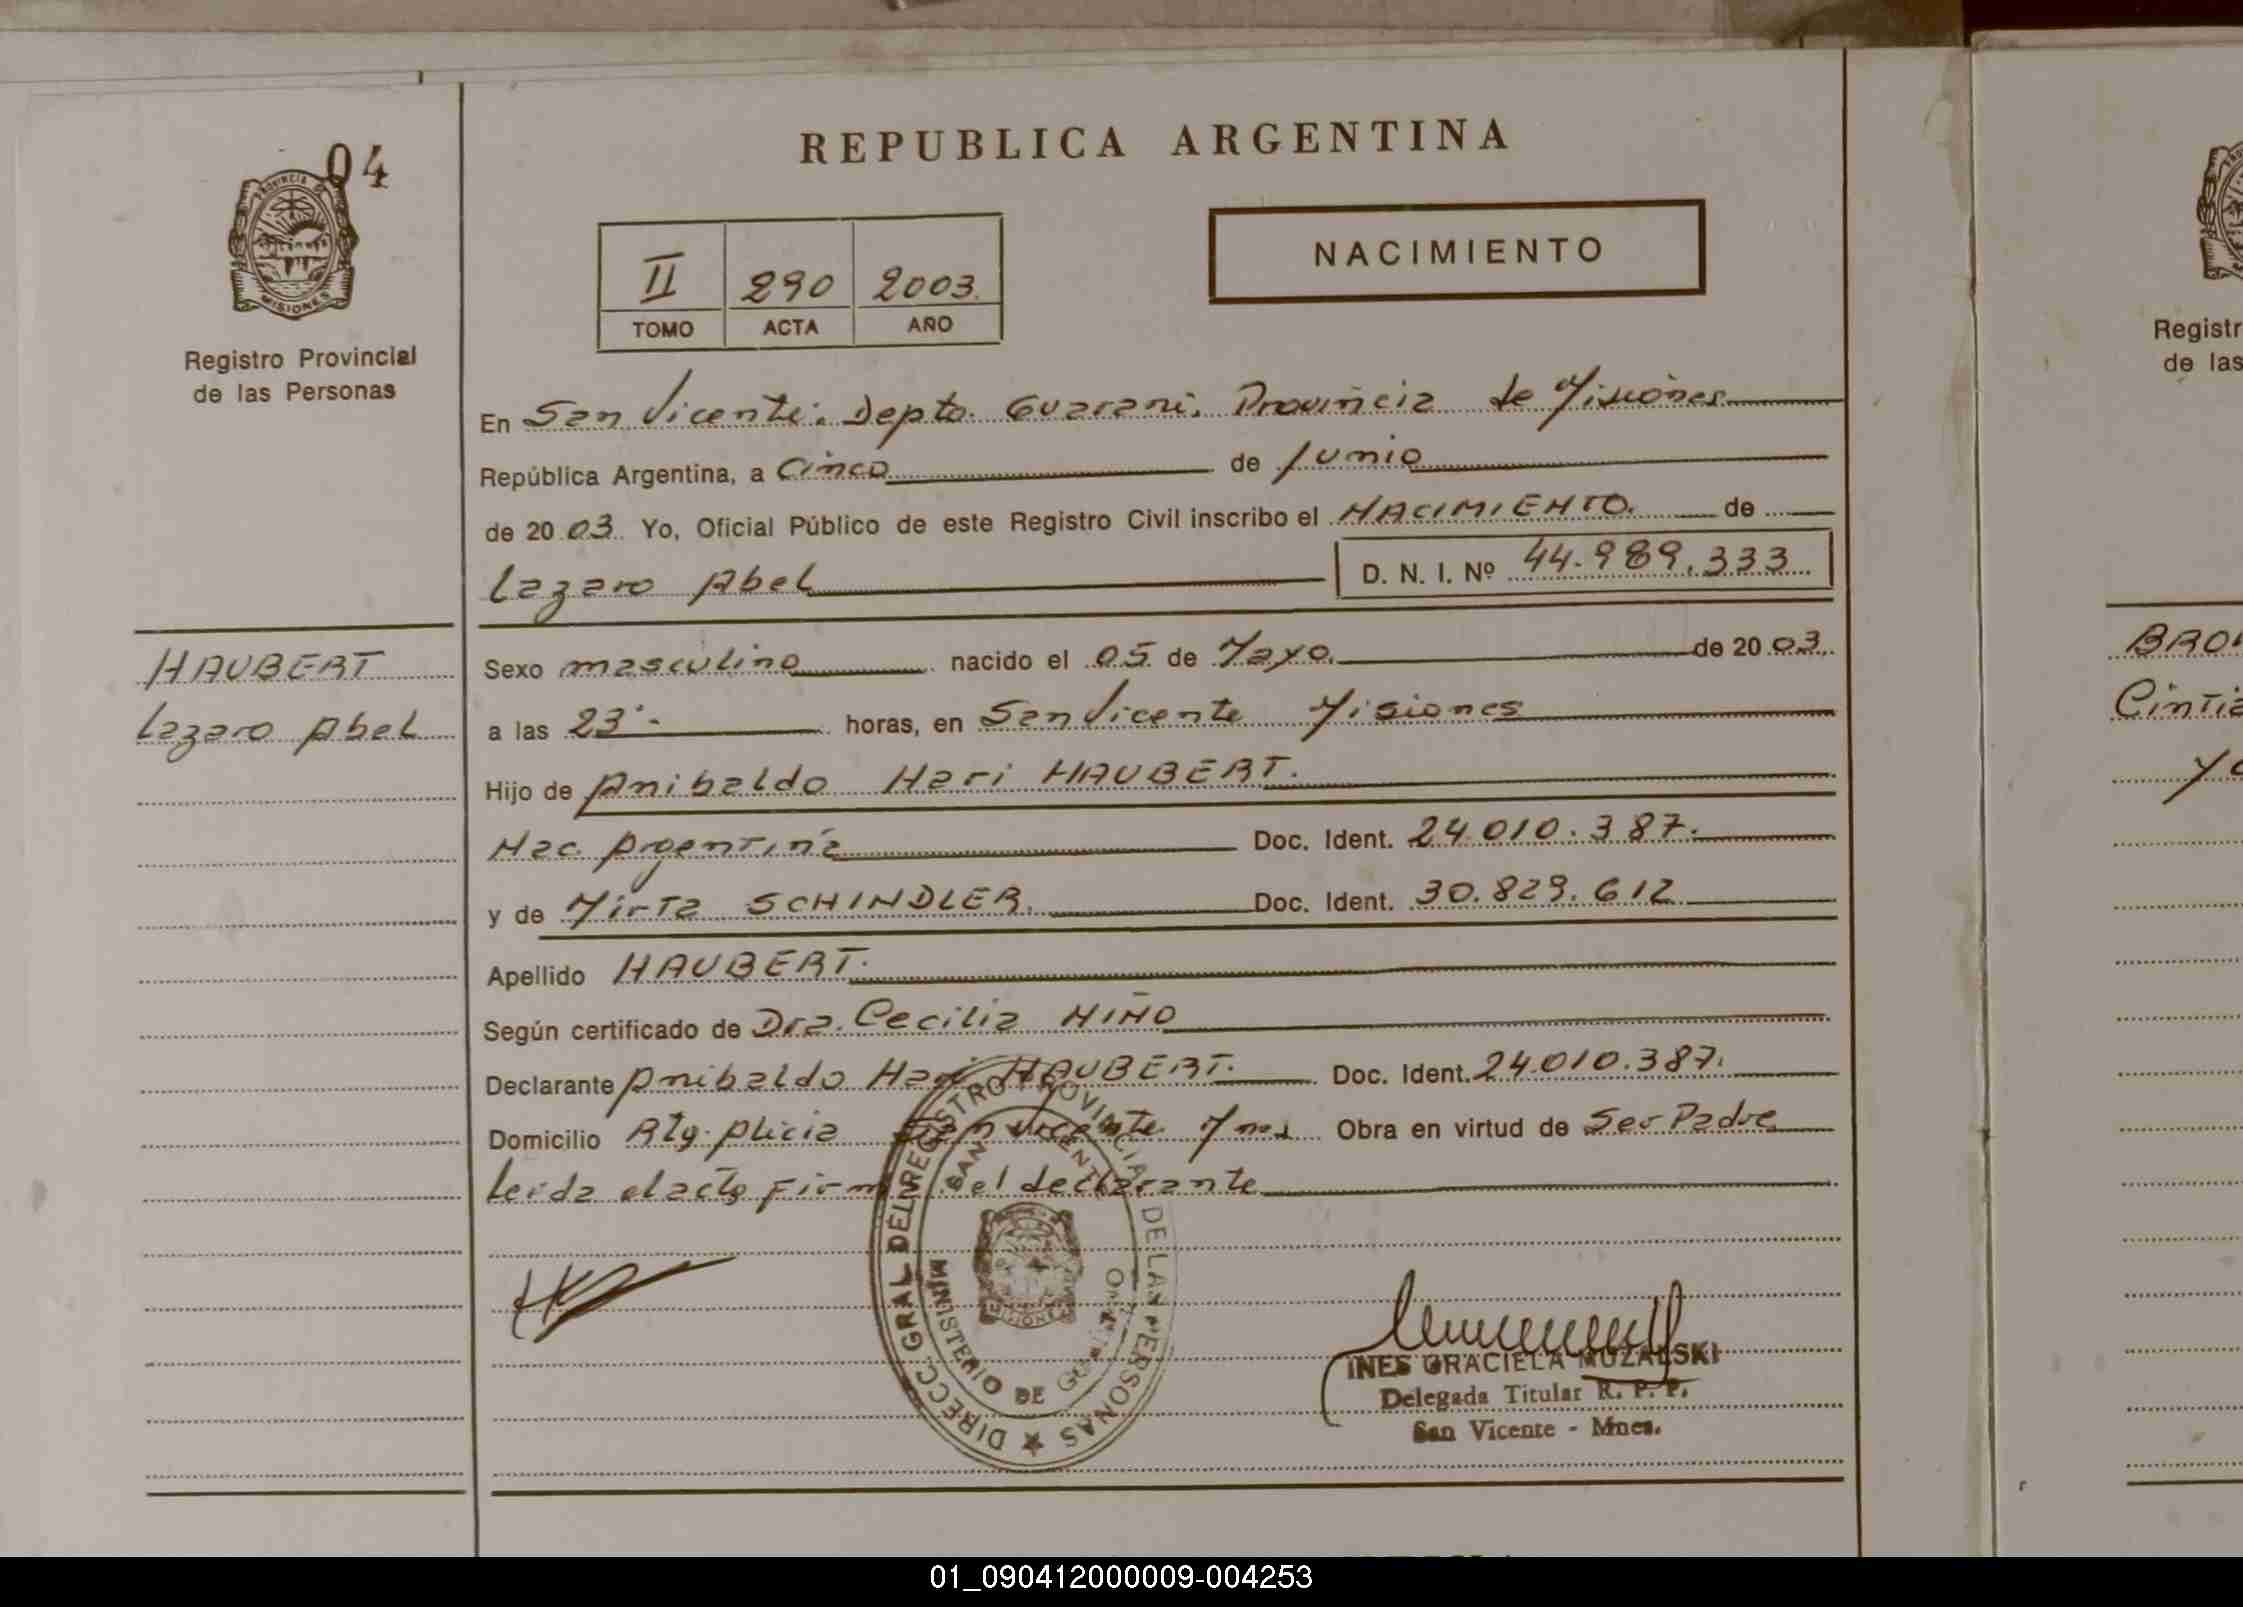 04
PROVINCIA DE
MISIONES
Registro Provincial
de las Personas
HAUBERT
Lazaro Abel
REPUBLICA ARGENTINA
NACIMIENTO
II 290 2003
TOMO ACTA AÑO
En San Vicente. Depto. Guarani. Provincia de Misiones
República Argentina, a Cinco de Junio
de 2003. Yo, Oficial Público de este Registro Civil inscribo el NACIMIENTO. de
Lazaro Abel D. N. I. Nº 44.989.333
Sexo masculino nacido el 05 de Mayo. de 2003.
a las 23.- horas, en San Vicente Misiones
Hijo de Anibaldo Hari HAUBERT.
Nac. Argentina Doc. Ident. 24.010.387.
y de Mirta SCHINDLER. Doc. Ident. 30.829.612
Apellido HAUBERT.
Según certificado de Dra. Cecilia NIÑO
Declarante Anibaldo Hari HAUBERT. Doc. Ident. 24.010.387.
Domicilio Rtg. Alicia San Vicente Mnes Obra en virtud de Ser Padre
Leida el acta firma el declarante
DIRECC. GRAL DEL REGISTRO PROVINCIAL DE LAS PERSONAS
SAN VICENTE
MINISTERIO DE GOBIERNO
MISIONES
INES GRACIELA MUZALSKI
Delegada Titular R. P. P.
San Vicente - Mnes.
Registr
de las
Cintia
01_090412000009-004253